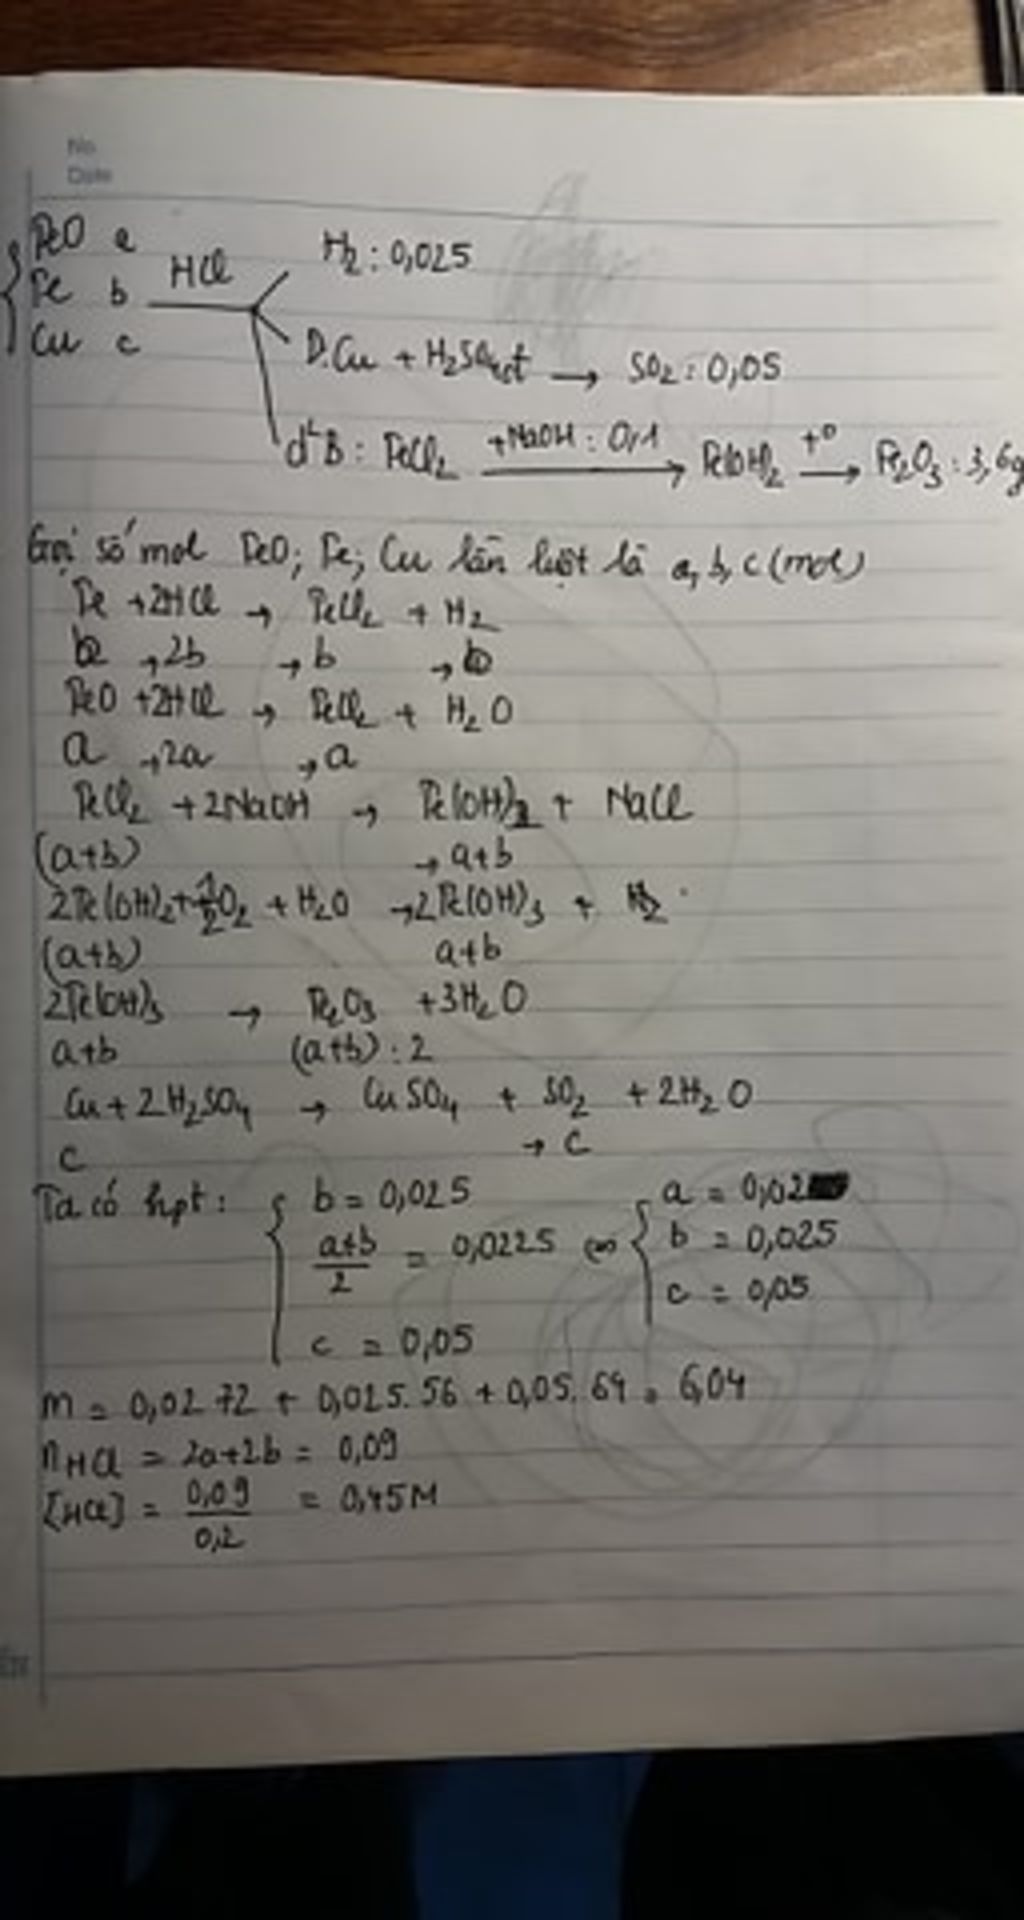 No
Date
FeO a
Fe b HCl H2 : 0,025
Cu c
D.Cu + H2SO4đ → SO2 : 0,05
d²B : FeCl2 +NaOH : 0,1 → Fe(OH)2 +° → Fe2O3 : 3,6g
Gọi số mol FeO; Fe; Cu lần lượt là a, b, c (mol)
Fe + 2HCl → FeCl2 + H2
b → 2b → b → b
FeO + 2HCl → FeCl2 + H2O
a → 2a → a
FeCl2 + 2NaOH → Fe(OH)2 + NaCl
(a+b) → a+b
2Fe(OH)2 + 1/2 O2 + H2O → 2Fe(OH)3 +
(a+b) a+b
2Fe(OH)3 → Fe2O3 + 3H2O
a+b (a+b) : 2
Cu + 2H2SO4 → CuSO4 + SO2 + 2H2O
c → c
Ta có hpt : { b = 0,025
(a+b)/2 = 0,0225
c = 0,05
⇔ { a = 0,02
b = 0,025
c = 0,05
m = 0,02 72 + 0,025.56 + 0,05.64 = 6,04
nHCl = 2a+2b = 0,09
[HCl] = 0,09/0,2 = 0,45M